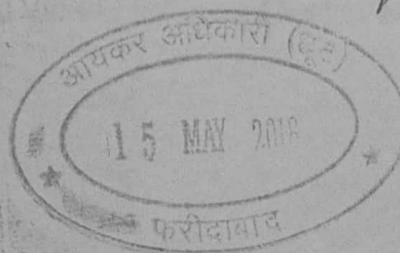 आयकर अधिकारी (छूट)
15 MAY 2018
फरीदाबाद